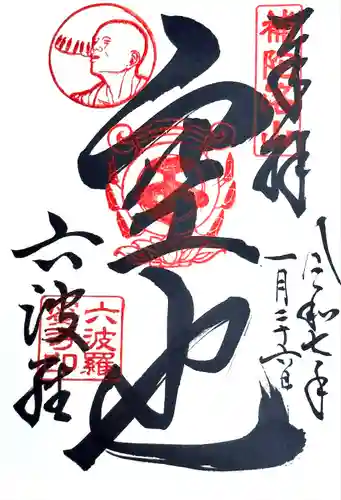 奉拝
補陀洛山
令和七年
一月二十六日
空也
六波羅
六波羅